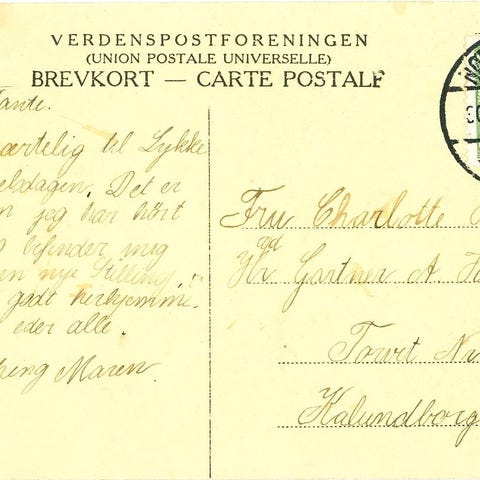 VERDENSPOSTFORENINGEN
(UNION POSTALE UNIVERSELLE)
BREVKORT — CARTE POSTALE
Tante.
ærtelig til Lykke
elsdagen. Det er
n jeg har hørt
g befinder mig
en nye Stilling,
godt herhjemme.
eder alle.
Maren.
Fru Charlotte
Hr Gartner A. H
Torvt N
Kalundborg